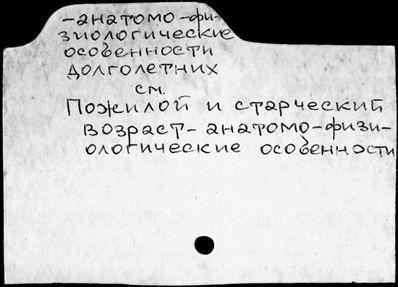 -анатомо-фи-
зиологические
особенности
долголетних
см.
Пожилой и старческий
возраст-анатомо-физи-
ологические особенности